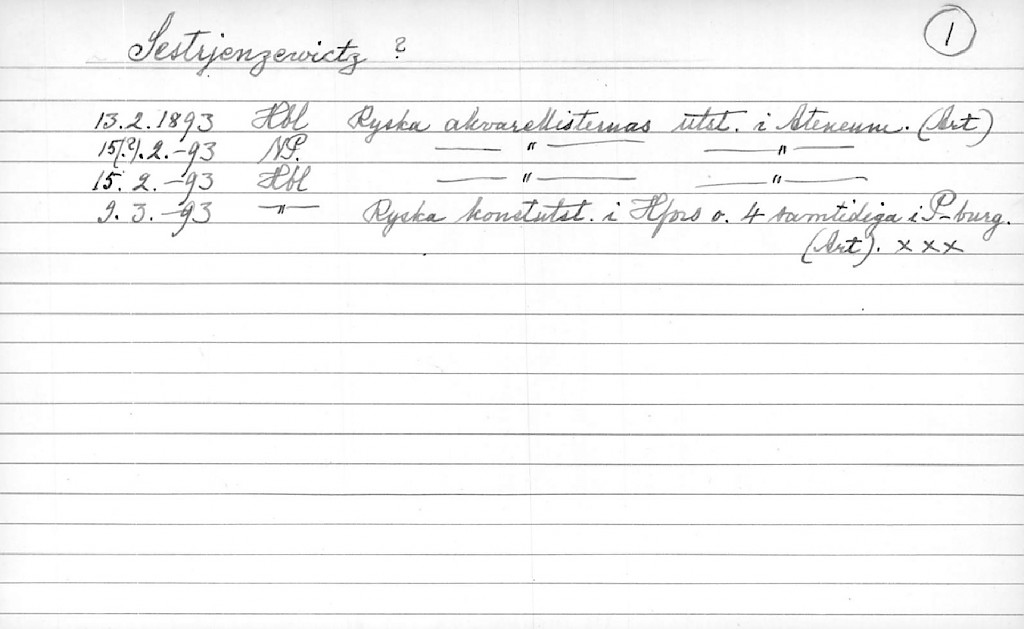 Sestrjenzewictz ? 1
13.2.1893 Hbl Ryska akvarellisternas utst. i Ateneum. (Art)
15(?).2.-93 N.P. — " — — " —
15. 2. -93 Hbl — " — — " —
9. 3. -93 — " — Ryska konstutst. i Hfors o. 4 samtidiga i P-burg.
(Art). x x x